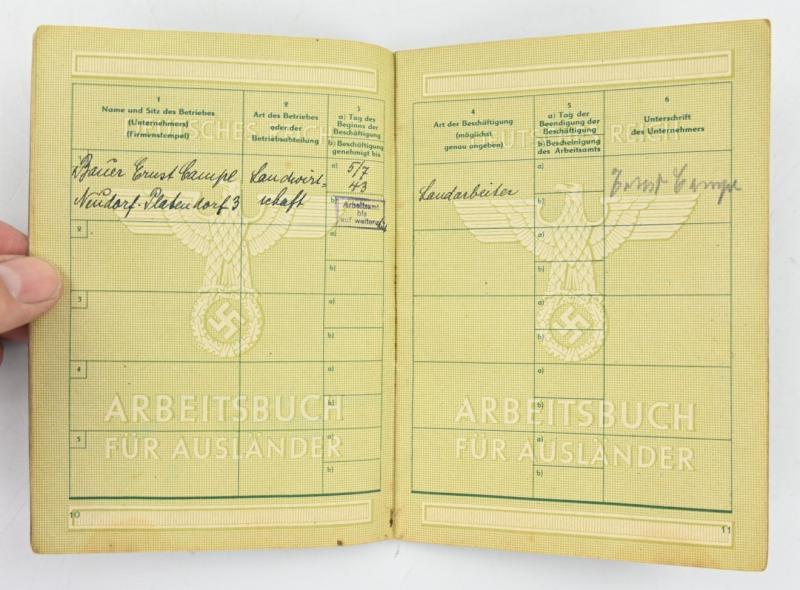 DEUTSCHES REICH
1
Name und Sitz des Betriebes
(Unternehmers)
(Firmenstempel)
2
Art des Betriebes
oder der
Betriebsabteilung
3
a) Tag des
Beginns der
Beschäftigung
b) Beschäftigung
genehmigt bis
Bauer Ernst Campe
Neudorf-Platendorf 3
Landwirt-
schaft
a) 5/7
43
b)
Arbeitsamt
bis
auf weiteres
2
a)
b)
3
a)
b)
4
a)
b)
5
a)
b)
ARBEITSBUCH
FÜR AUSLÄNDER
10
DEUTSCHES REICH
4
Art der Beschäftigung
(möglichst
genau angeben)
5
a) Tag der
Beendigung der
Beschäftigung
b) Bescheinigung
des Arbeitsamts
6
Unterschrift
des Unternehmers
Landarbeiter
a)
b)
Ernst Campe
a)
b)
a)
b)
a)
b)
a)
b)
ARBEITSBUCH
FÜR AUSLÄNDER
11